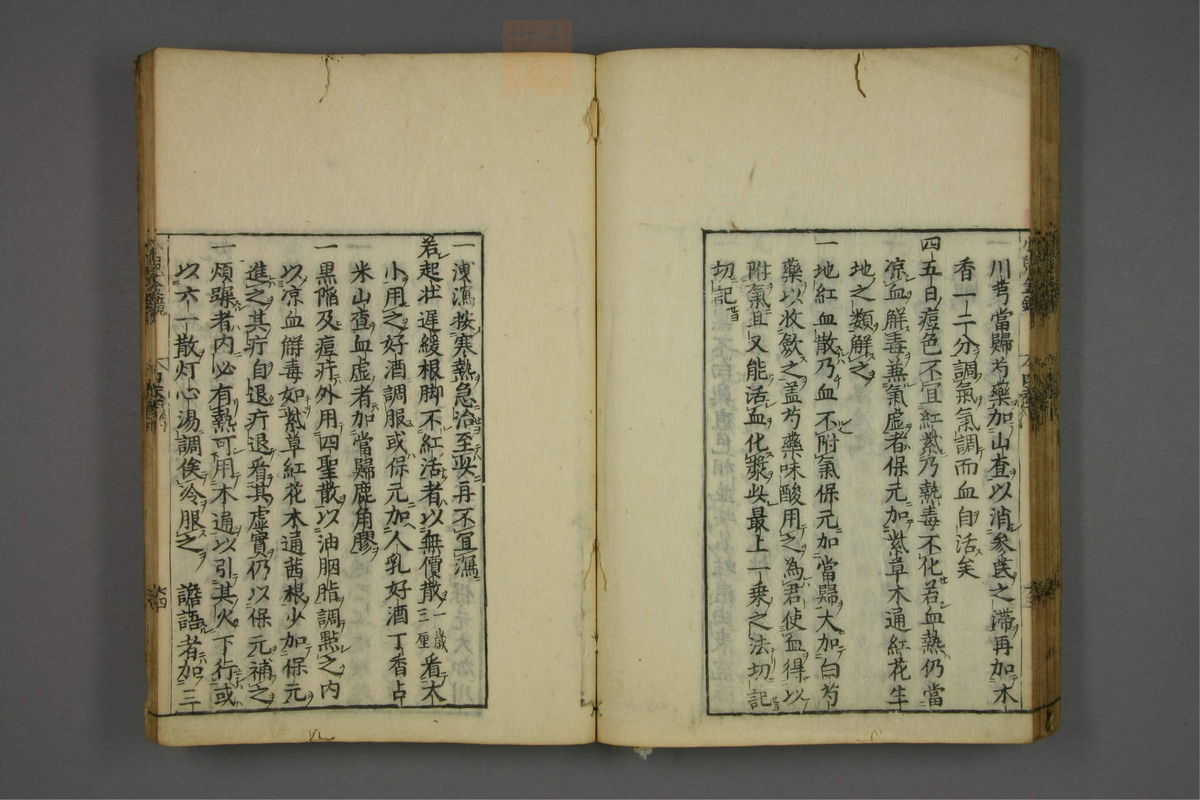 一川芎當歸芍藥加山查以消參芪之滯再加木
香一二分調氣氣調而血自活矣
四五日痘色不宜紅紫乃熱毒不化若血熱仍當
凉血解毒兼氣虛者保元加紫草木通紅花生
地之類解之
一地紅血散乃血不附氣保元加當歸大加白芍
藥以收斂之盖芍藥味酸用之為君使血得以
附氣且又能活血化漿此最上一乗之法切記
切記
一洩瀉按寒熱急治至此再不宜瀉
若起壮遲緩根脚不紅活者以無價散一歲三厘看大
小用之好酒調服或保元加人乳好酒丁香占
米山查血虛者加當歸鹿角膠
一黒陥及痘疔外用四聖散以油胭脂調點之内
以凉血解毒如紫草紅花木通茜根少加保元
進之其疔自退疔退看其虛實仍以保元補之
一煩躁者内必有熱可用木通以引其火下行或
以六一散灯心湯調俟冷服之 譫語者加三